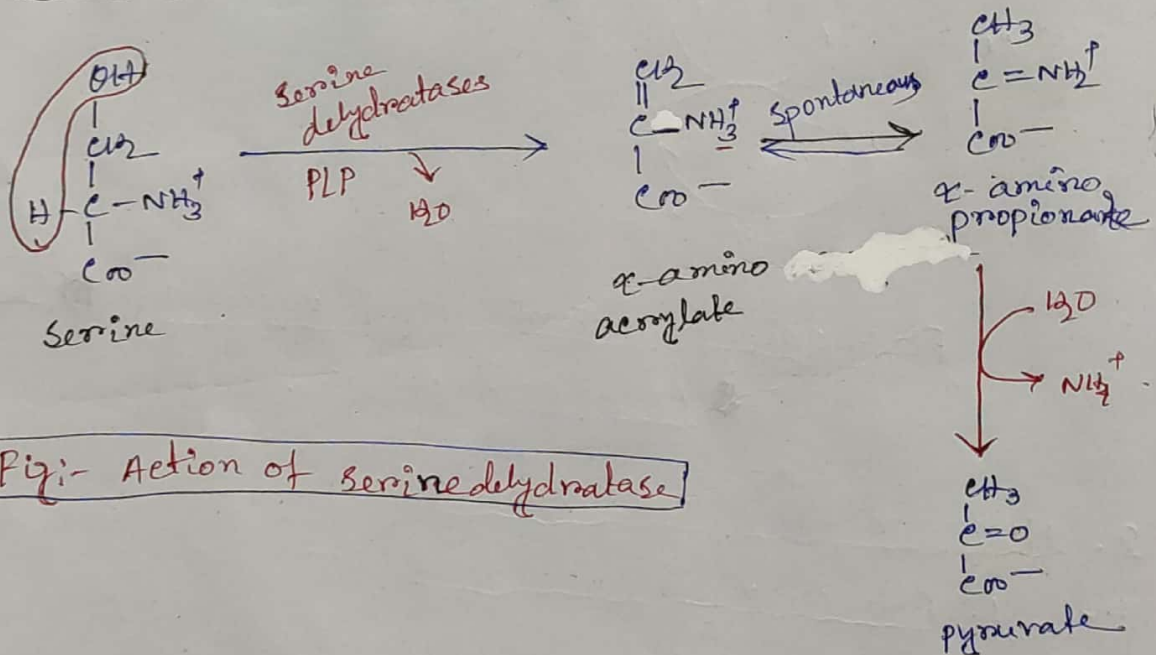 OH
CH2
H-C-NH3+
COO-
Serine
Serine
dehydratases
PLP
H2O
CH2
||
C-NH3+
COO-
α-amino
acrylate
Spontaneous
CH3
C=NH2+
COO-
α-amino
propionate
H2O
NH4+
CH3
C=O
COO-
pyruvate
Fig:- Action of serinedehydratase